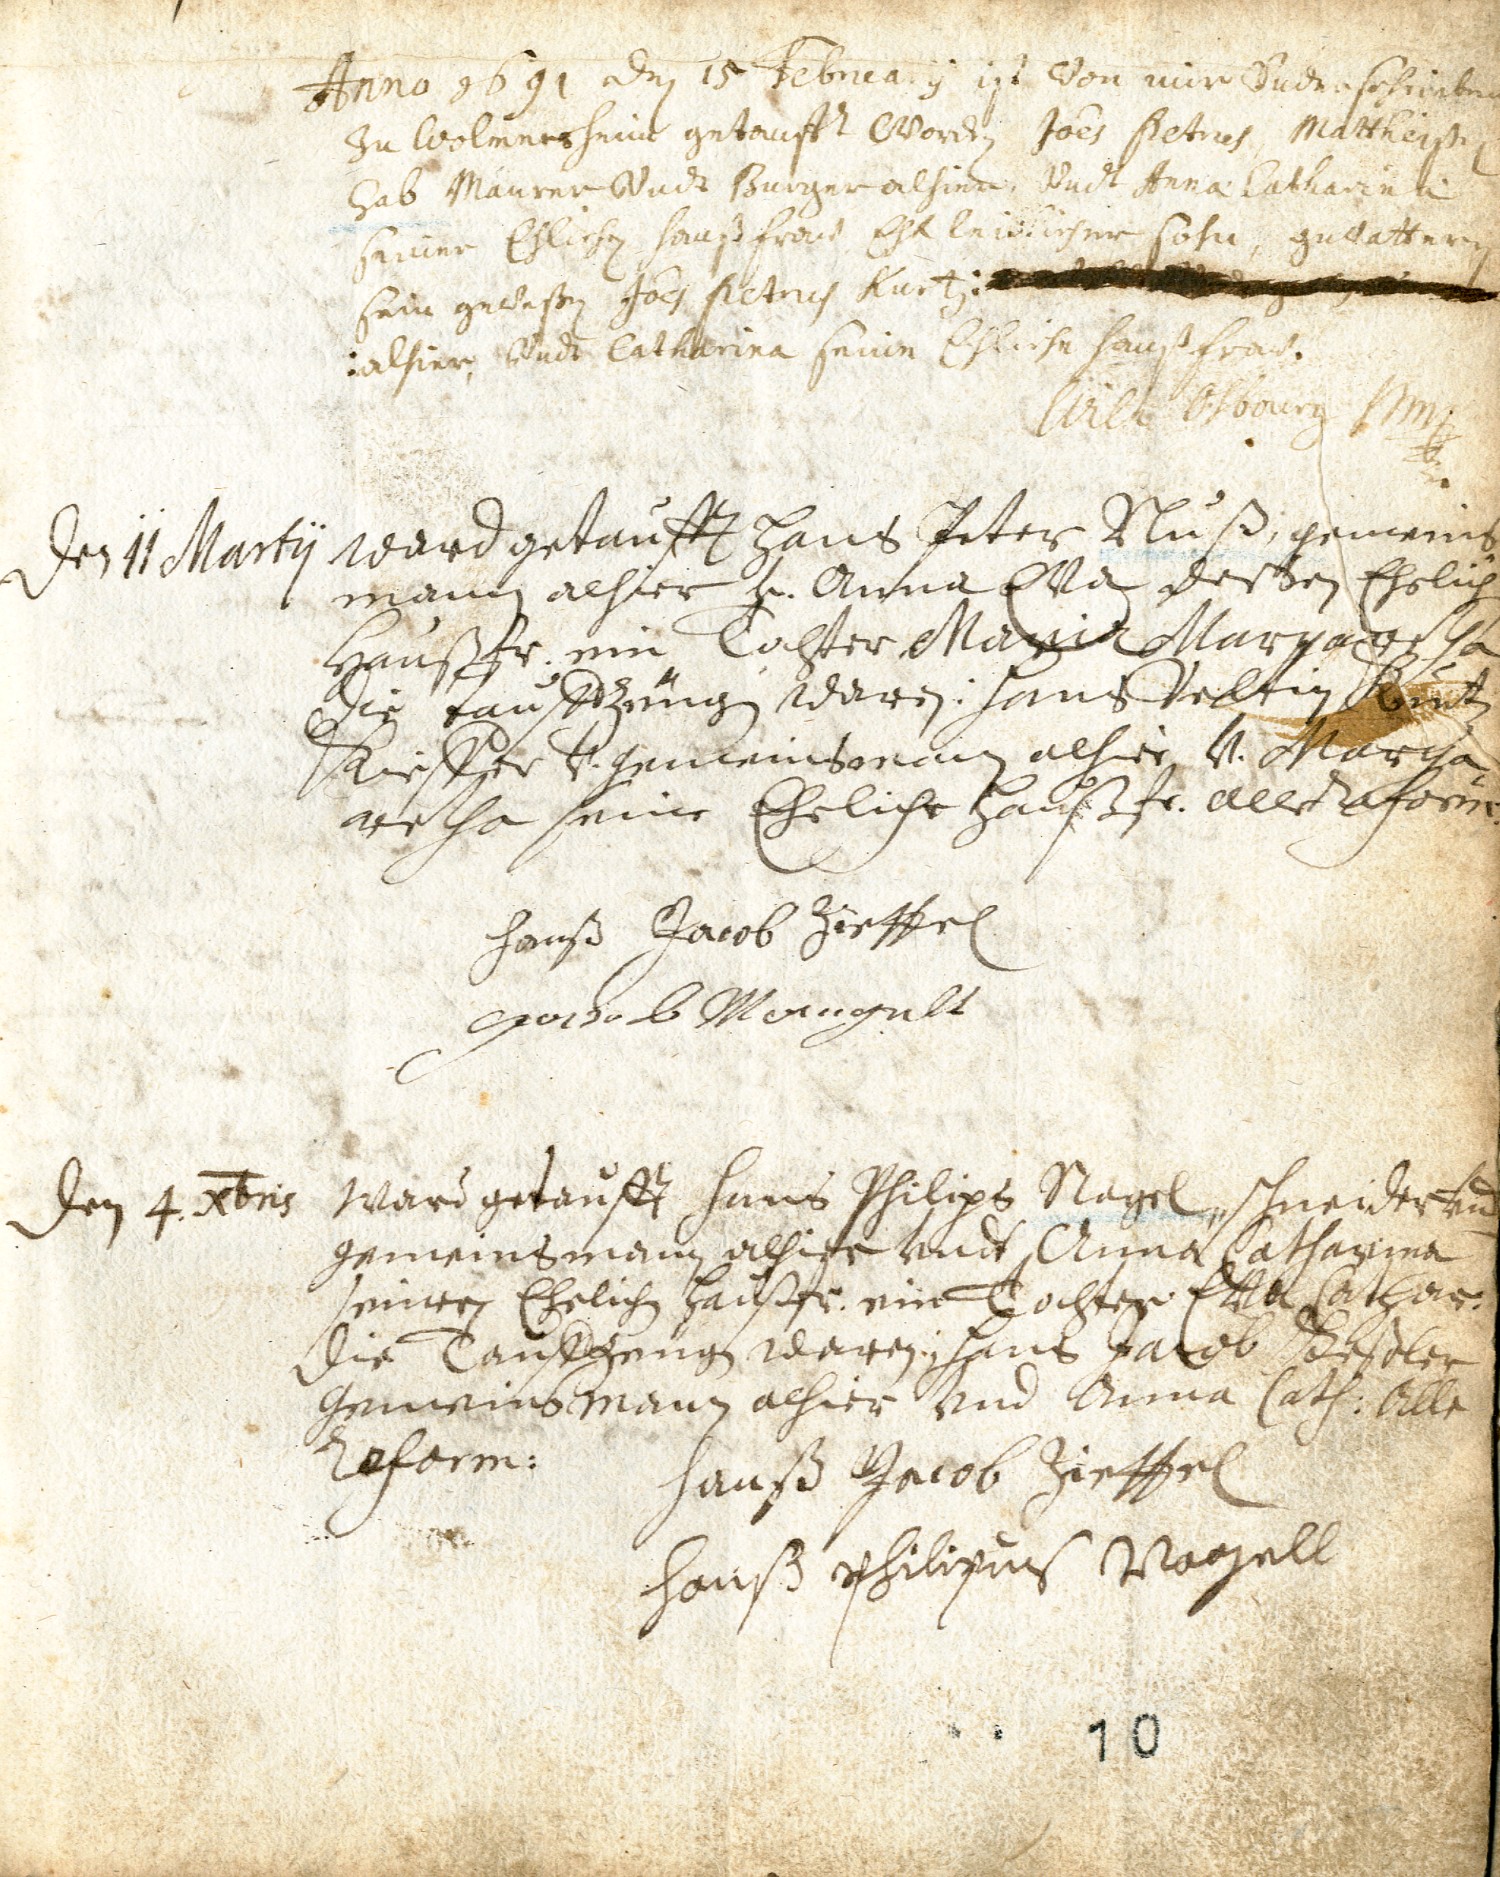 Anno 1691 den 15 Februarij ist Von mir Underschrieben
Zu Wolmersheim getaufft Worden Joes Petrus, Mattheiß
hab Maurer Undt Burger alhier, Undt Anna Catharina
seiner Ehlichen haußfraw Ehleiblicher sohn, gevattern
sein geweßen Joes Petrus Kurtz:
:alhier, Undt Catharina seine Ehliche haußfraw.
Den 11 Martij ward getaufft Hans Peter Nuß, gemeins
mann alhier V. Anna Eva dessen Ehelich
Haußfr. ein Tochter Maria Margaretha
die tauffzeüng waren: Hans Veltin
Kieffer V. gemeinsmann alhier, V. Marga
retha seine Eheliche Haußfr. alle reform.
Hanß Jacob Zieffel
Jacob Mangult
Den 4. Xbris ward getaufft Hans Philips Nagel, schneider und
gemeinsmann alhier undt Anna Catharina
seiner Ehelichen Haußfr. ein Tochter Eva Cathar:
die Tauffzeüng waren, Hans Jacob
gemeinsmann alhier und Anna Cath: Alle
reform:
Hanß Jacob Zieffel
Hanß Philipus Nagell
10